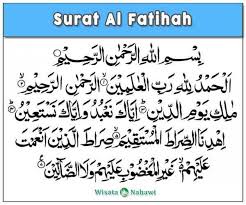 Surat Al Fatihah
بِسْمِ اللّٰهِ الرَّحْمٰنِ الرَّحِيْمِ
اَلْحَمْدُ لِلّٰهِ رَبِّ الْعٰلَمِيْنَۙ الرَّحْمٰنِ الرَّحِيْمِۙ
مٰلِكِ يَوْمِ الدِّيْنِۗ اِيَّاكَ نَعْبُدُ وَاِيَّاكَ نَسْتَعِيْنُۗ
اِهْدِنَا الصِّرَاطَ الْمُسْتَقِيْمَۙ صِرَاطَ الَّذِيْنَ اَنْعَمْتَ
عَلَيْهِمْ ەۙ غَيْرِ الْمَغْضُوْبِ عَلَيْهِمْ وَلَا الضَّاۤلِّيْنَ
Wisata Nabawi